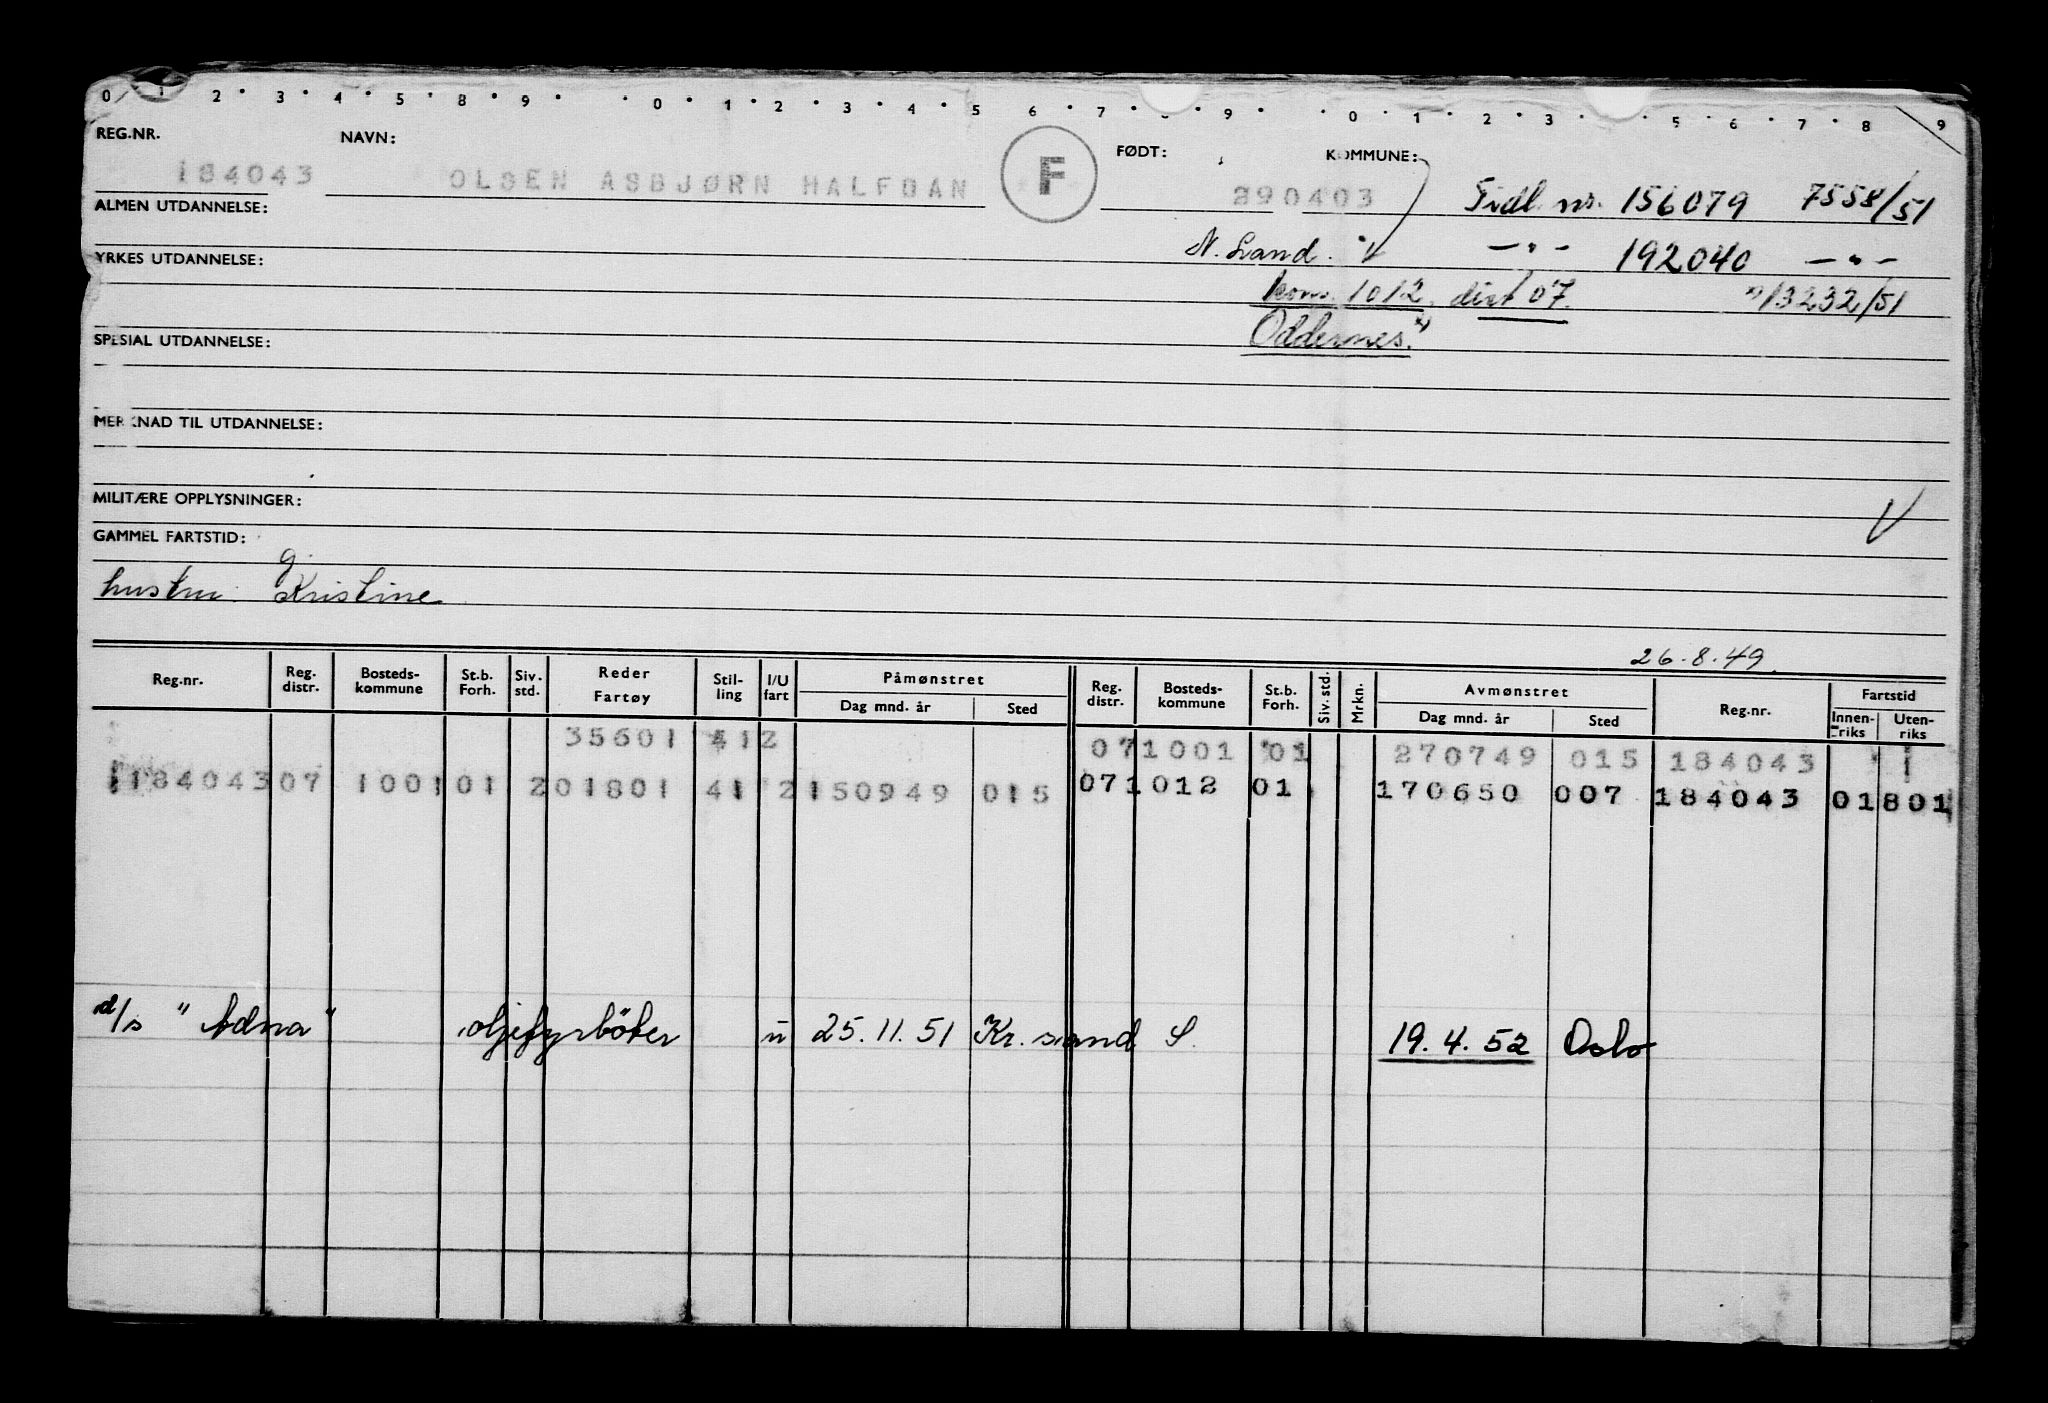 0 1 2 3 4 5 8 9 0 1 2 3 4 5 6 7 9 0 1 2 3 5 6 7 8 9
REG.NR. NAVN: F FØDT: KOMMUNE:
184043 OLSEN ASBJØRN HALFDAN 290403 Tidl. nr. 156079 7558/51
ALMEN UTDANNELSE:
N. Land. — " — 192040 — " —
YRKES UTDANNELSE:
kom. 1012, dist 07. x) 13232/51
Oddernes. x)
SPESIAL UTDANNELSE:
MERKNAD TIL UTDANNELSE:
MILITÆRE OPPLYSNINGER:
GAMMEL FARTSTID:
hustru: Kristine
26.8.49.
Reg.nr. Reg. distr. Bosteds-kommune St.b. Forh. Siv. std. Reder Fartøy Stil-ling I/U fart Påmønstret Dag mnd. år Sted Reg. distr. Bosteds-kommune St.b. Forh. Siv. std. Mrkn. Avmønstret Dag mnd. år Sted Reg.nr. Fartstid Innen-riks Uten-riks
35601 412 071001 01 270749 015 184043
184043 07 1001 01 201801 41 2 150949 015 071012 01 170650 007 184043 01801
d/s "Adna" oljefyrböter u 25.11.51 Kr.sand S. 19.4.52 Oslo